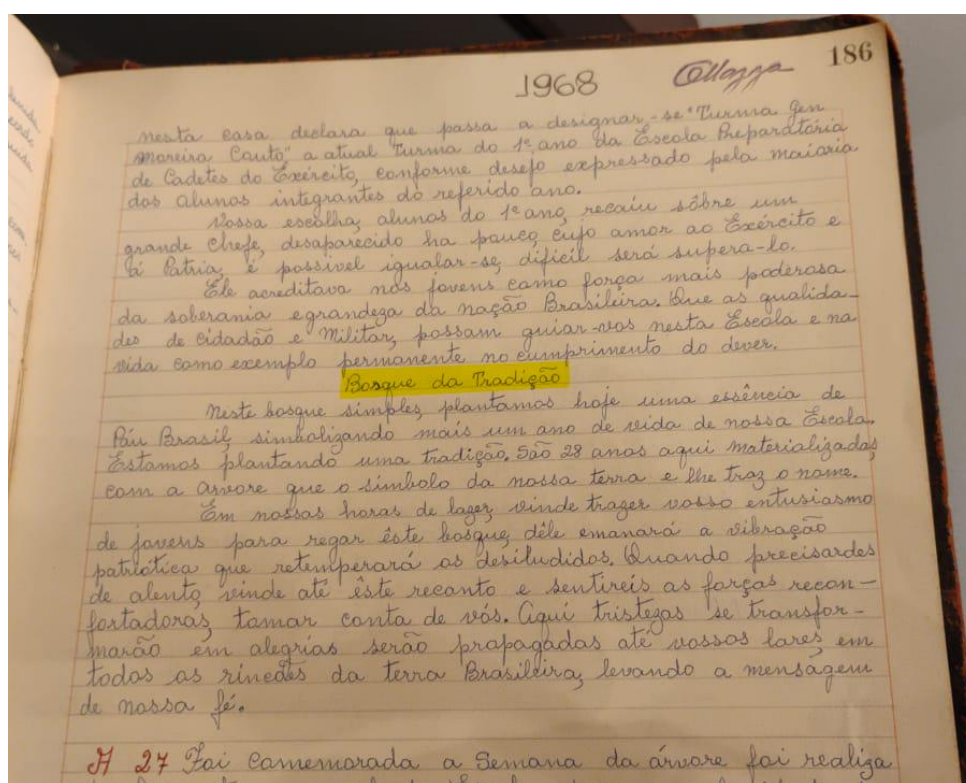 186
1968
nesta casa declara que passa a designar-se "Turma Gen
Moreira Couto" a atual Turma do 1º ano da Escola Preparatória
de Cadetes do Exército, conforme desejo expressado pela maioria
dos alunos integrantes do referido ano.
Vossa escolha, alunos do 1º ano, recaiu sôbre um
grande chefe, desaparecido ha pouco, cujo amor ao Exército e
á Patria, é possivel igualar-se, dificil será supera-lo.
Ele acreditava nos jovens como força mais poderosa
da soberania e grandeza da nação Brasileira. Que as qualida-
des de cidadão e Militar, possam guiar-vos nesta Escola e na
vida como exemplo permanente no cumprimento do dever.
Bosque da Tradição
Neste bosque simples, plantamos hoje uma essência de
Páu Brasil, simbolizando mais um ano de vida de nossa Escola.
Estamos plantando uma tradição. São 28 anos aqui materializadas,
com a arvore que o simbolo da nossa terra e lhe traz o nome.
Em nossas horas de lazer, vinde trazer vosso entusiasmo
de jovens para regar êste bosque, dêle emanará a vibração
patriótica que retemperará os desiludidos. Quando precisardes
de alento, vinde até êste recanto e sentireis as forças recon-
fortadoras, tomar conta de vós. Aqui tristezas se transfor-
marão em alegrias serão propagadas até vossos lares, em
todos os rincões da terra Brasileira, levando a mensagem
de nossa fé.
A 27 Foi comemorada a Semana da árvore foi realiza